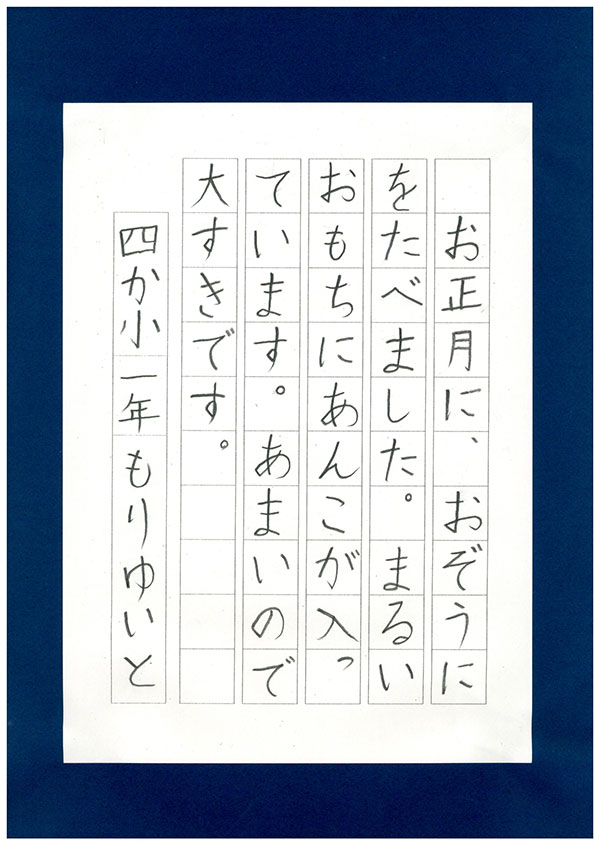 お正月に、おぞうに
をたべました。まるい
おもちにあんこが入っ
ています。あまいので
大すきです。
四か小一年もりゆいと